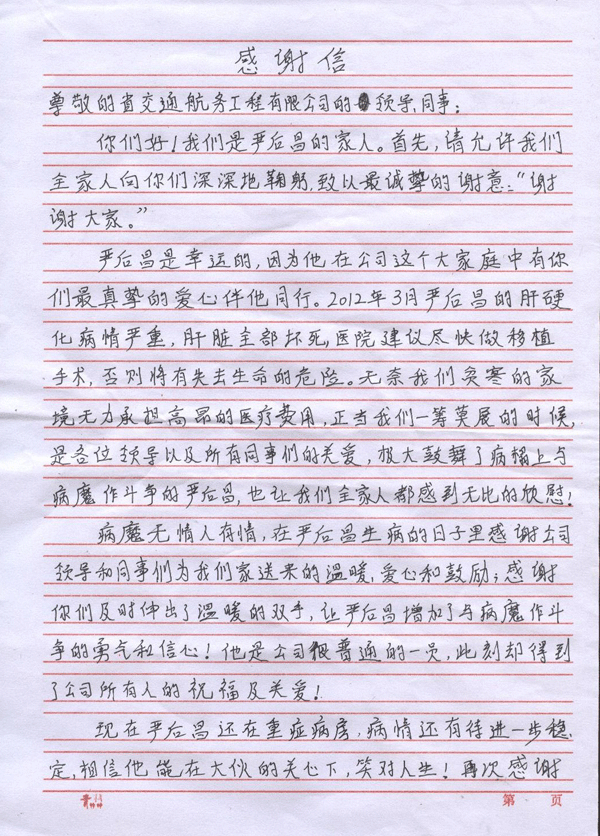 感谢信
尊敬的省交通航务工程有限公司的领导、同事：
你们好！我们是严后昌的家人。首先，请允许我们
全家人向你们深深地鞠躬，致以最诚挚的谢意：“谢
谢大家。”
严后昌是幸运的，因为他在公司这个大家庭中有你
们最真挚的爱心伴他同行。2012年3月严后昌的肝硬
化病情严重，肝脏全部坏死，医院建议尽快做移植
手术，否则将有失去生命的危险。无奈我们贫寒的家
境无力承担高昂的医疗费用，正当我们一筹莫展的时候，
是各位领导以及所有同事们的关爱，极大鼓舞了病榻上与
病魔作斗争的严后昌，也让我们全家人都感到无比的欣慰！
病魔无情人有情，在严后昌生病的日子里感谢公司
领导和同事们为我们家送来的温暖，爱心和鼓励；感谢
你们及时伸出了温暖的双手，让严后昌增加了与病魔作斗
争的勇气和信心！他是公司很普通的一员，此刻却得到
了公司所有人的祝福及关爱！
现在严后昌还在重症病房，病情还有待进一步稳
定，相信他能在大伙的关心下，笑对人生！再次感谢
第 页